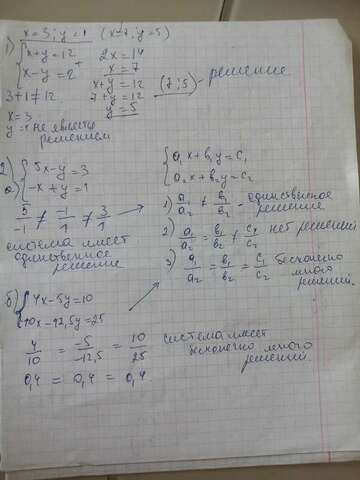 x=3; y=1 (x=7, y=5)
1) { x+y=12
x-y=2
2x=14
x=7
x+y=12
3+1≠12
7+y=12
y=5
(7;5) - решение
x=3
y=1 не является
решением
2)
а) { 5x-y=3
-x+y=1
5/-1 ≠ -1/1 ≠ 3/1
система имеет
единственное
решение
{ a₁x+b₁y=c₁
a₂x+b₂y=c₂
1) a₁/a₂ ≠ b₁/b₂ - единственное
решение
2) a₁/a₂ = b₁/b₂ ≠ c₁/c₂ нет решений
3) a₁/a₂ = b₁/b₂ = c₁/c₂ бесконечно
много
решений.
б) { 4x-5y=10
10x-12,5y=25
4/10 = -5/-12,5 = 10/25
0,4 = 0,4 = 0,4
система имеет
бесконечно много
решений.